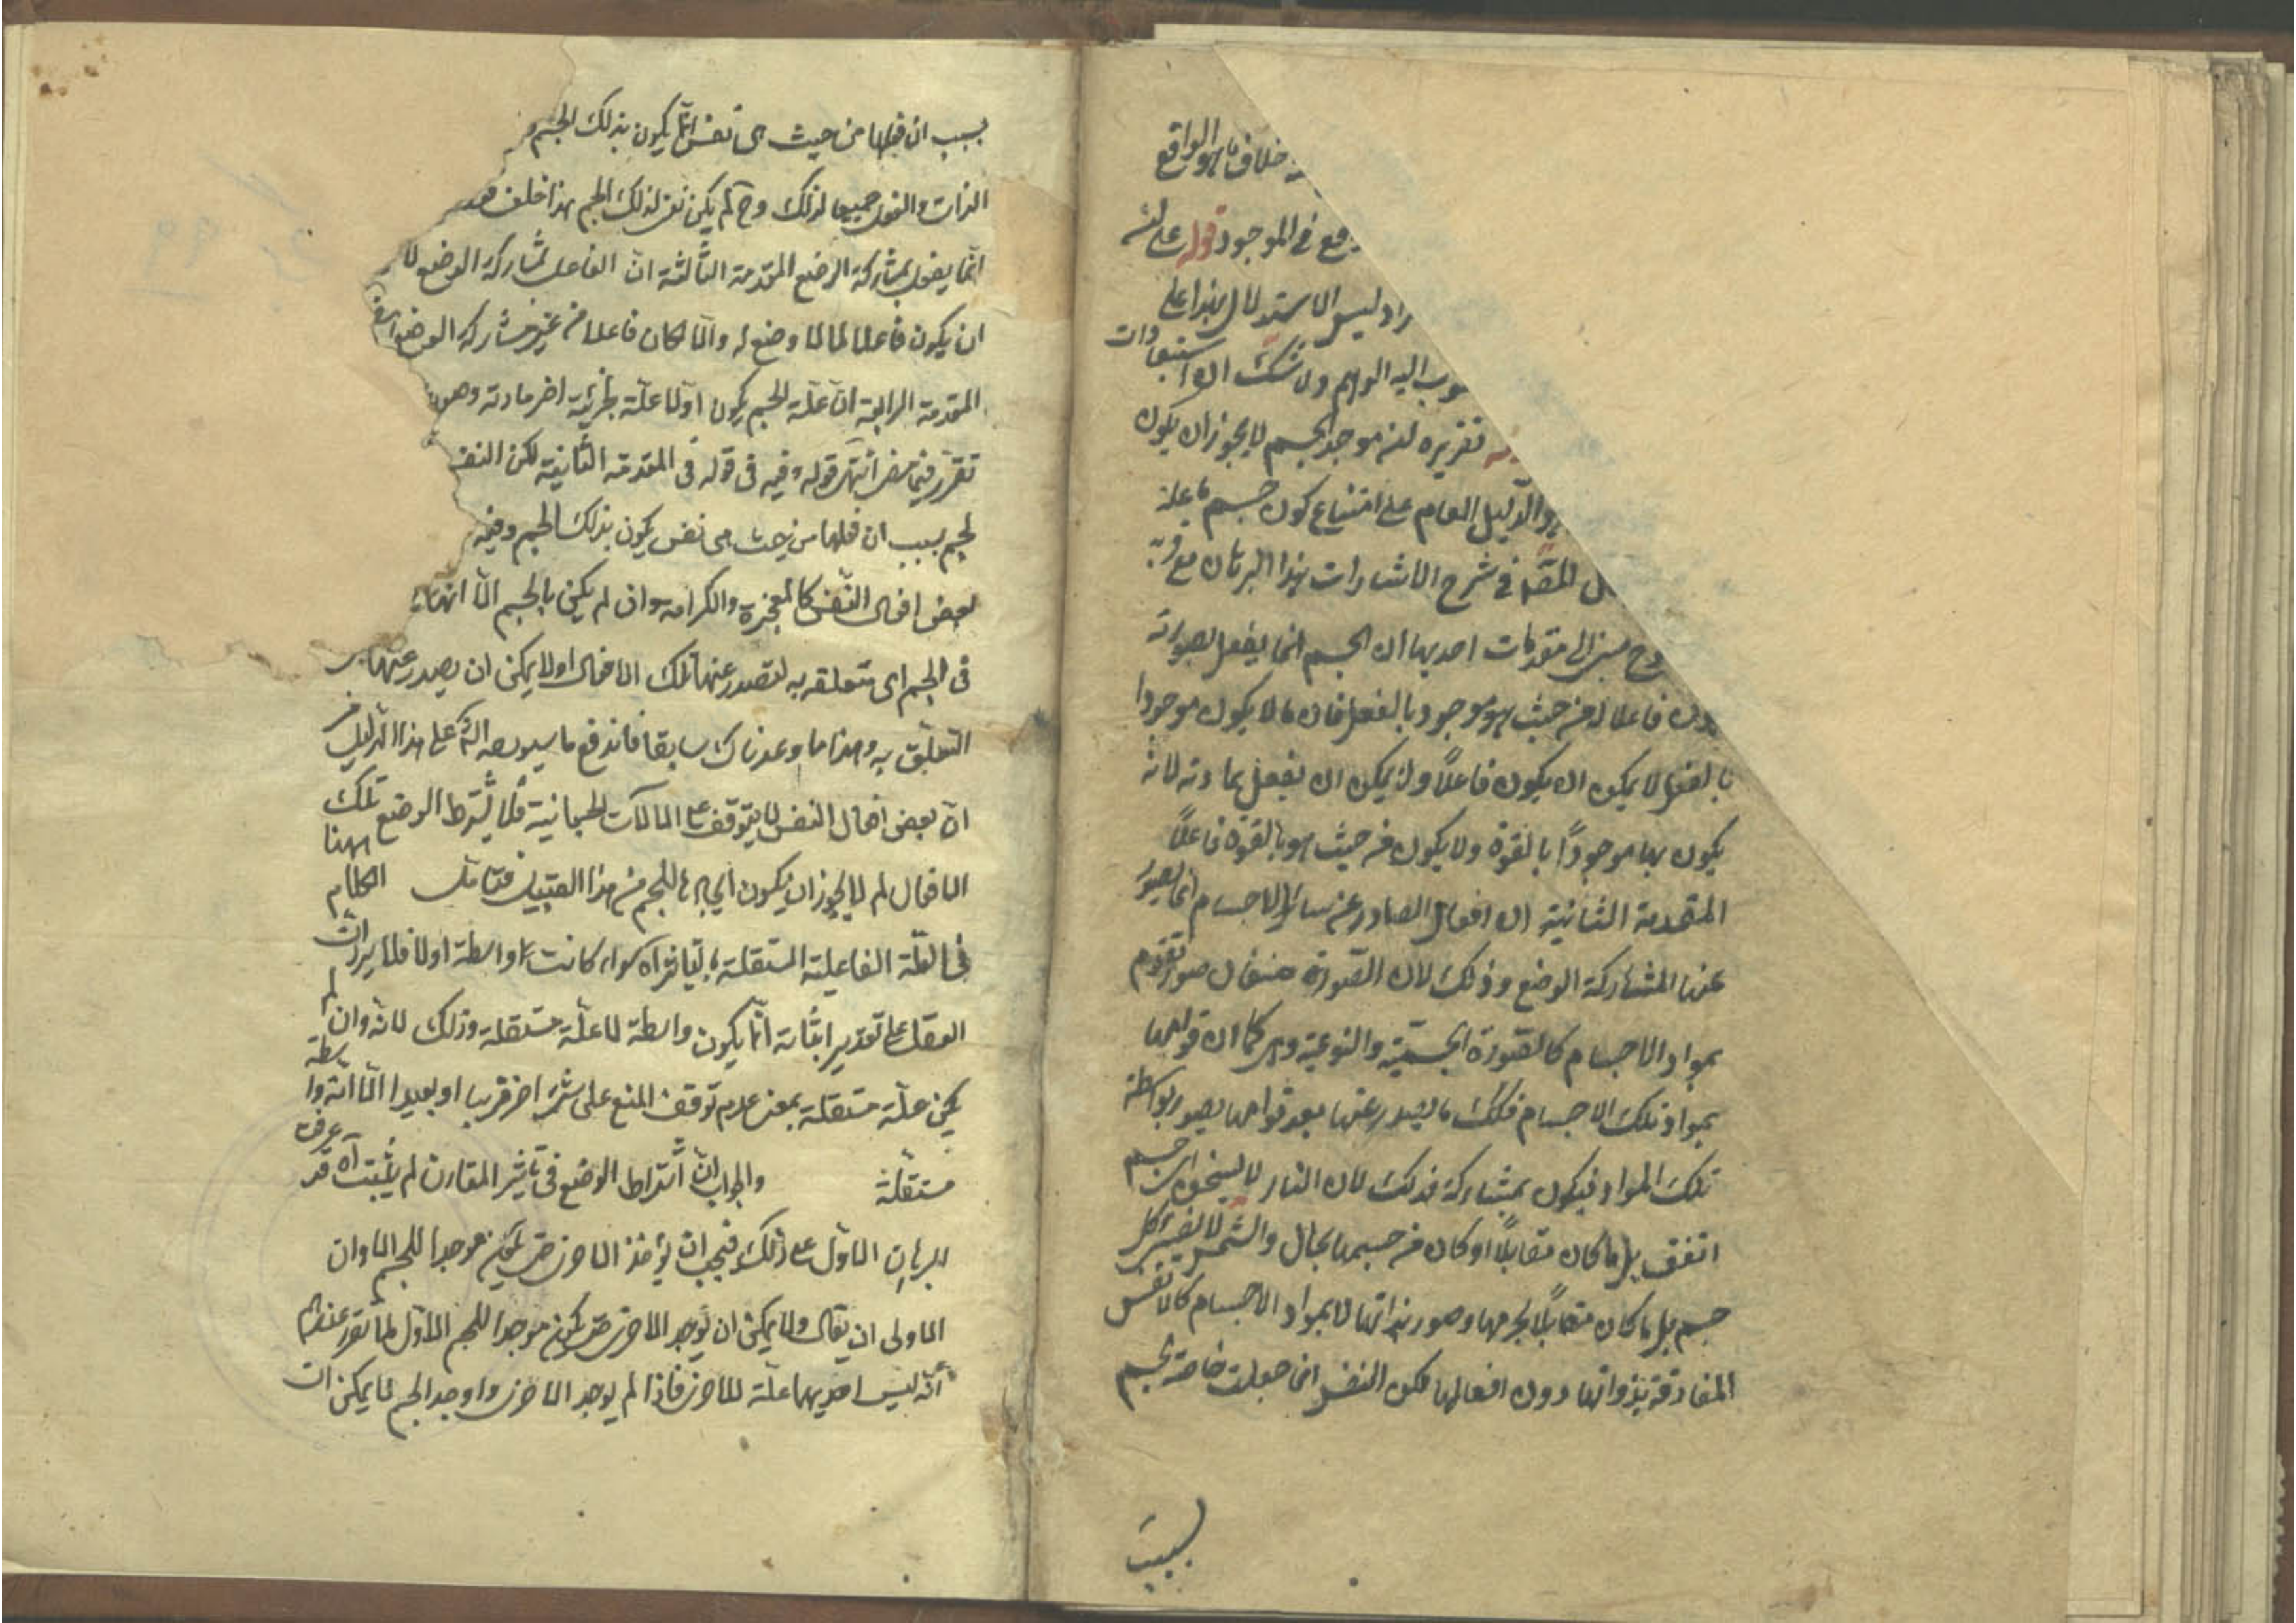 خلاف ما هو الواقع
في الموجود قوله على انه
ليس الاستدلال بهذا على
اليه الوهم ولا شك ان استبعادات
تقريره انه موجد الجسم لا يجوز ان يكون
والدليل العام على امتناع كون جسم ما علة
المصنف في شرح الاشارات هذا البرهان مع
مبني الى مقدمات احديها ان الجسم انما يفعل بصورته
فاعلا له من حيث هو موجود بالفعل فان ما لا يكون موجودا
بالفعل لا يمكن ان يكون فاعلاً ولا يمكن ان يفعل بمادته لانه
يكون بها موجوداً بالقوة ولا يكون من حيث هو بالقوة فاعلاً
المقدمة الثانية ان افعال الصادر عن سائر الاجسام انما يصدر
عنها المشاركة الوضع وذلك لان الصورة صنفان صور تقوم
بمواد الاجسام كالصورة الجسمية والنوعية وهي كما ان قوامها
بمواد تلك الاجسام فكك ما يصدر عنها بعد قوامها يصدر بواسطة
تلك المواد فيكون بمشاركة فذلك لان النار لا يسخن اي جسم
اتفق بل ما كان مقابلاً او كان من جسمها بحال والشمس لا يضيئ كل
جسم بل ما كان مقابلاً لجرمها وصور بذاتها لا بمواد الاجسام كالانفس
المفارقة بذواتها دون افعالها لكن النفس انما جعلت خاصة بجسم
بسبب
بسبب ان فعلها من حيث هي نفس انما يكون بذلك الجسم و
الذات والفعل جميعا لذلك وح لم يكن نفس لذلك الجسم هذا خلف
انما يفعل بمشاركة الوضع المقدمة الثالثة ان الفاعل بمشاركة الوضع لا
ان يكون فاعلا لما لا وضع له والا لكان فاعلا من غير مشاركة الوضع
المقدمة الرابعة ان علة الجسم يكون اولا علة لجزئيه اخر مادته وصور
تقرر فيما انتهى قوله وفيه في قوله في المقدمة الثانية لكن النفس
لجسم بسبب ان فعلها من حيث هي نفس يكون بذلك الجسم وفيه
بعض افعال النفس كالمعجزة والكرامة وان لم يكن بالجسم الا انها
في الجسم اي متعلقه به لتصدر عنها تلك الافعال اولا يمكن ان يصدر عنها
التعلق به وهذا ما وعدناك سابقا فاندفع ما سيورده الش على هذا الدليل من
ان بعض افعال النفس لا يتوقف على الآلات الجسمانية فلا يشترط الوضع تلك
الافعال لم لا يجوز ان يكون ايجادها للجسم من هذا القبيل فتامل الكلام ههنا
في العلة الفاعلية المستقلة بالتاثير سواء كانت بواسطة اولا فلا يرد ان
العقل على تقدير اثباته انما يكون واسطة لا علة مستقلة وذلك لانه وان لم
يكن علة مستقلة بمعنى عدم توقف المنع على شئ اخر قريبا او بعيدا الا انه واسطة
مستقلة والجواب ان اشتراط الوضع في تاثير المقارن لم يثبت آه قد عرفت
البرهان الاول على ذلك فيجب ان
الاولى ان يقال ولا يمكن ان يوجد الاخرى حتى يكون موجدا للجسم الاول لما تقرر عندهم
انه ليس احديهما علة للاخرى فاذا لم يوجد الاخرى واوجد الجسم لا يمكن ان